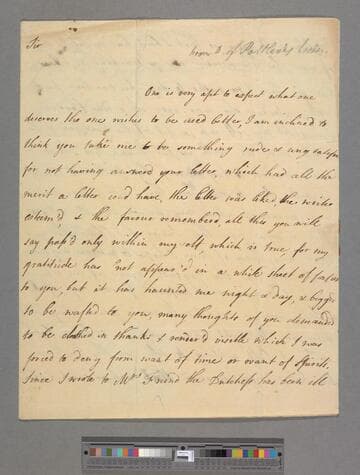 Sir
from D. of Portland's
One is very apt to expect what one
deserves tho one wishes to be used better, I am inclined to
think you take me to be something rude &
for not having answerd your letter, which had all the
merit a letter cou'd have, the letter was liked, the writer
esteem'd & the favour remember'd, all this you will
say pass'd only within my self which is true, for my
gratitude has not appear'd in a white sheet of
to you, but it has haunted me night & day, & begg'd
to be wafted to you, many thoughts of you demanded
to be cloathed in thanks & render'd visible which I was
forced to deny from want of time or want of spirits.
Since I wrote to Mrs the Dutchess has been ill